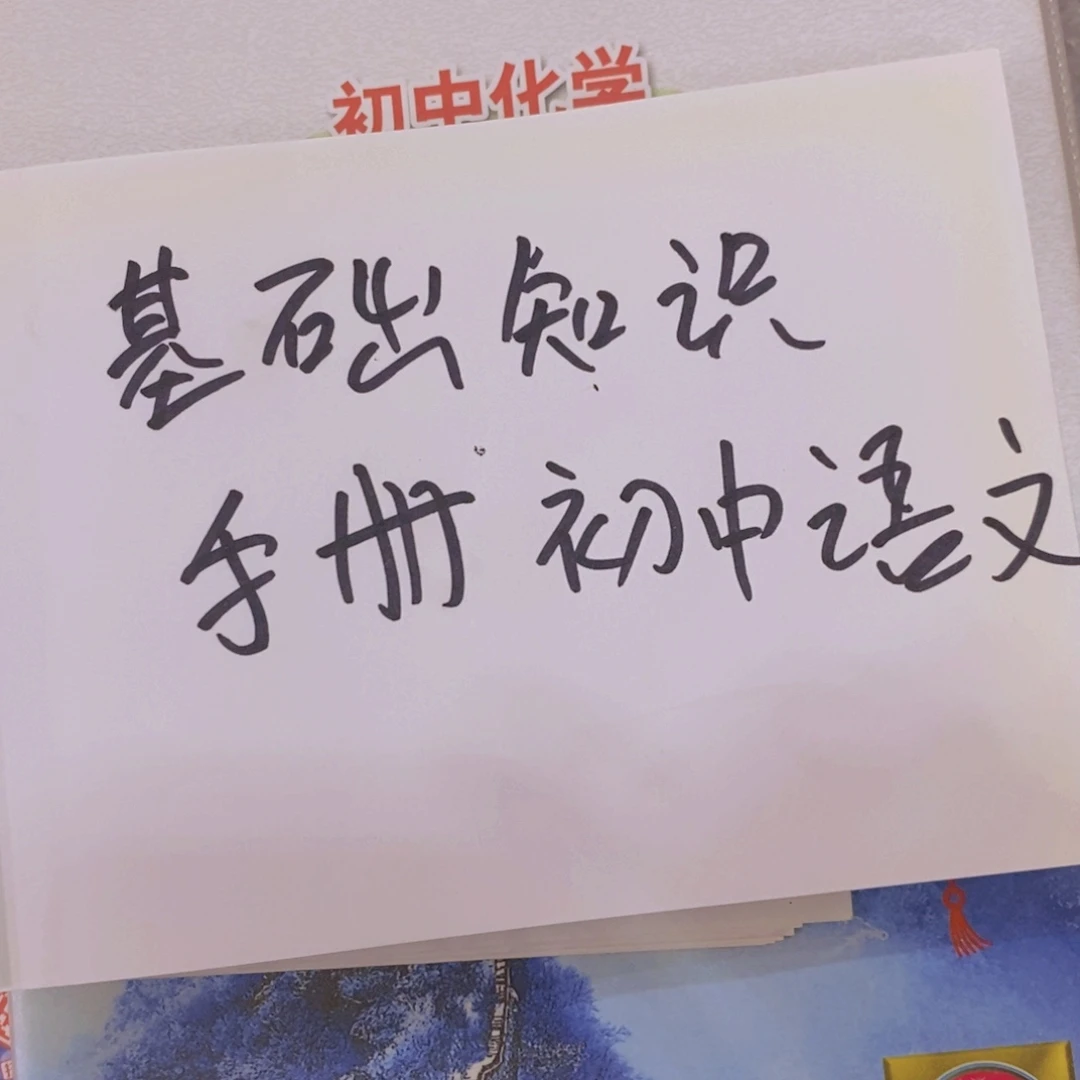 初中化学
基础知识
手册初中语文